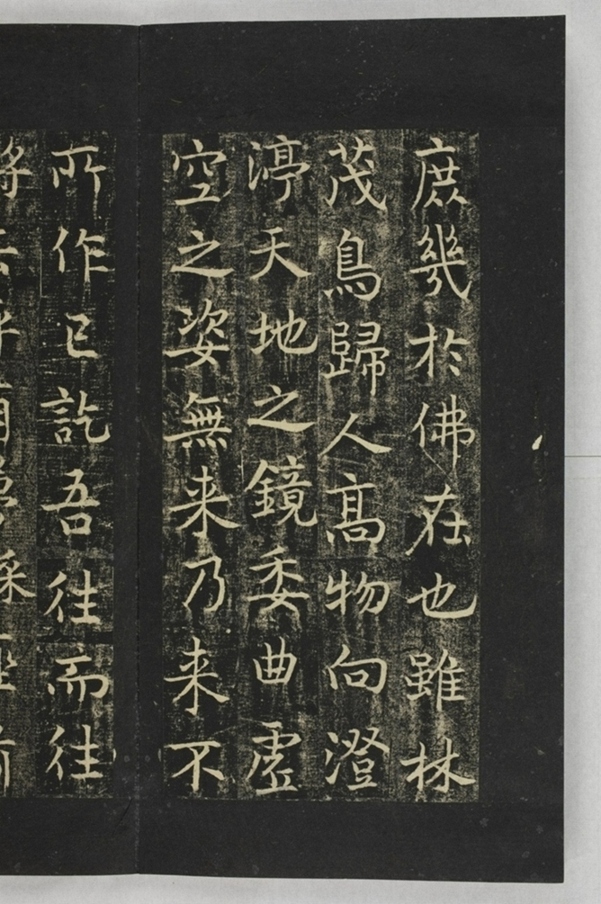 庶幾於佛在也雖林
茂鳥歸人高物向澄
渟天地之鏡委曲虛
空之姿無来乃来不
所作已訖吾往而往